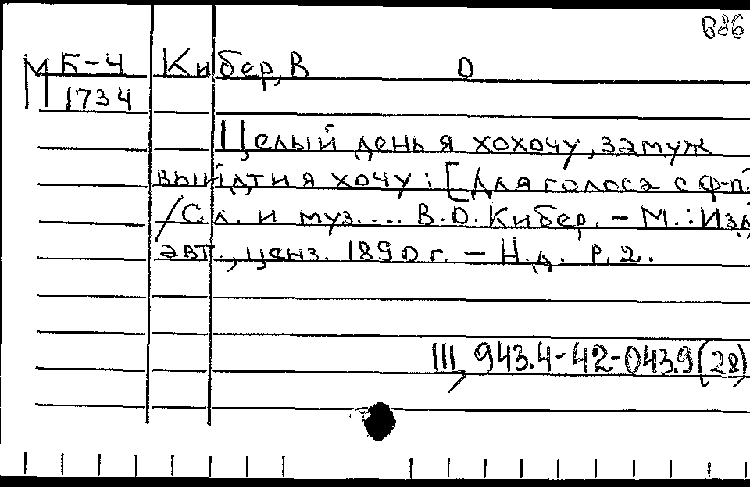 В86
М Б-4 Кибер, В О
1734
Целый день я хохочу, замуж
выйдти я хочу: [Для голоса с ф-п.
/Сл. и муз.... В.О. Кибер. - М.: Изд
авт., ценз. 1890 г. - Н.д. Р. 2.
III, 943.4-42-043.9(28)